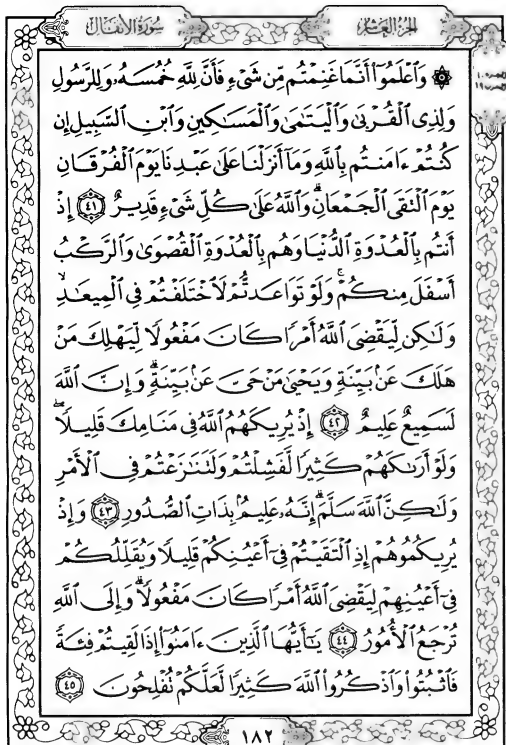 سُورَةُ الأَنفَال
الجُزءُ العَاشِر
۞ وَٱعۡلَمُوٓاْ أَنَّمَا غَنِمۡتُم مِّن شَيۡءٖ فَأَنَّ لِلَّهِ خُمُسَهُۥ وَلِلرَّسُولِ
وَلِذِي ٱلۡقُرۡبَىٰ وَٱلۡيَتَٰمَىٰ وَٱلۡمَسَٰكِينِ وَٱبۡنِ ٱلسَّبِيلِ إِن
كُنتُمۡ ءَامَنتُم بِٱللَّهِ وَمَآ أَنزَلۡنَا عَلَىٰ عَبۡدِنَا يَوۡمَ ٱلۡفُرۡقَانِ
يَوۡمَ ٱلۡتَقَى ٱلۡجَمۡعَانِۗ وَٱللَّهُ عَلَىٰ كُلِّ شَيۡءٖ قَدِيرٌ ٤١ إِذۡ
أَنتُم بِٱلۡعُدۡوَةِ ٱلدُّنۡيَا وَهُم بِٱلۡعُدۡوَةِ ٱلۡقُصۡوَىٰ وَٱلرَّكۡبُ
أَسۡفَلَ مِنكُمۡۚ وَلَوۡ تَوَاعَدتُّمۡ لَٱخۡتَلَفۡتُمۡ فِي ٱلۡمِيعَٰدِ
وَلَٰكِن لِّيَقۡضِيَ ٱللَّهُ أَمۡرٗا كَانَ مَفۡعُولٗا لِّيَهۡلِكَ مَنۡ
هَلَكَ عَنۢ بَيِّنَةٖ وَيَحۡيَىٰ مَنۡ حَيَّ عَنۢ بَيِّنَةٖۗ وَإِنَّ ٱللَّهَ
لَسَمِيعٌ عَلِيمٌ ٤٢ إِذۡ يُرِيكَهُمُ ٱللَّهُ فِي مَنَامِكَ قَلِيلٗاۖ
وَلَوۡ أَرَىٰكَهُمۡ كَثِيرٗا لَّفَشِلۡتُمۡ وَلَتَنَٰزَعۡتُمۡ فِي ٱلۡأَمۡرِ
وَلَٰكِنَّ ٱللَّهَ سَلَّمَۚ إِنَّهُۥ عَلِيمُۢ بِذَاتِ ٱلصُّدُورِ ٤٣ وَإِذۡ
يُرِيكُمُوهُمۡ إِذِ ٱلۡتَقَيۡتُمۡ فِيٓ أَعۡيُنِكُمۡ قَلِيلٗا وَيُقَلِّلُكُمۡ
فِيٓ أَعۡيُنِهِمۡ لِيَقۡضِيَ ٱللَّهُ أَمۡرٗا كَانَ مَفۡعُولٗاۗ وَإِلَى ٱللَّهِ
تُرۡجَعُ ٱلۡأُمُورُ ٤٤ يَٰٓأَيُّهَا ٱلَّذِينَ ءَامَنُوٓاْ إِذَا لَقِيتُمۡ فِئَةٗ
فَٱثۡبُتُواْ وَٱذۡكُرُواْ ٱللَّهَ كَثِيرٗا لَّعَلَّكُمۡ تُفۡلِحُونَ ٤٥
١٨٢